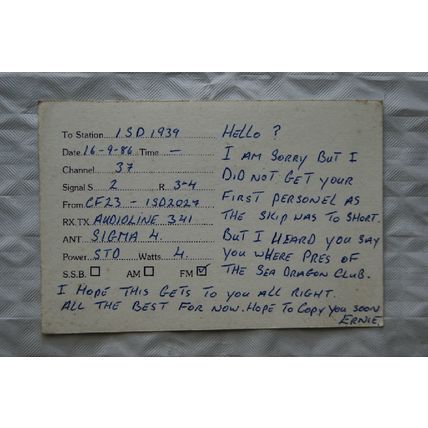 To Station 1SD 1939
Date 16-9-86 Time —
Channel 37
Signal S. 2 R. 3-4
From CF23 - 1SD2027
RX.TX AUDIOLINE 341
ANT SIGMA 4.
Power STD Watts 4.
S.S.B. ☐ AM ☐ FM ☑
HELLO ?
I AM SORRY BUT I
DID NOT GET YOUR
FIRST PERSONEL AS
THE SKIP WAS TO SHORT.
BUT I HEARD YOU SAY
YOU WHERE PRES OF
THE SEA DRAGON CLUB.
I HOPE THIS GETS TO YOU ALL RIGHT.
ALL THE BEST FOR NOW. HOPE TO COPY YOU SOON
ERNIE.